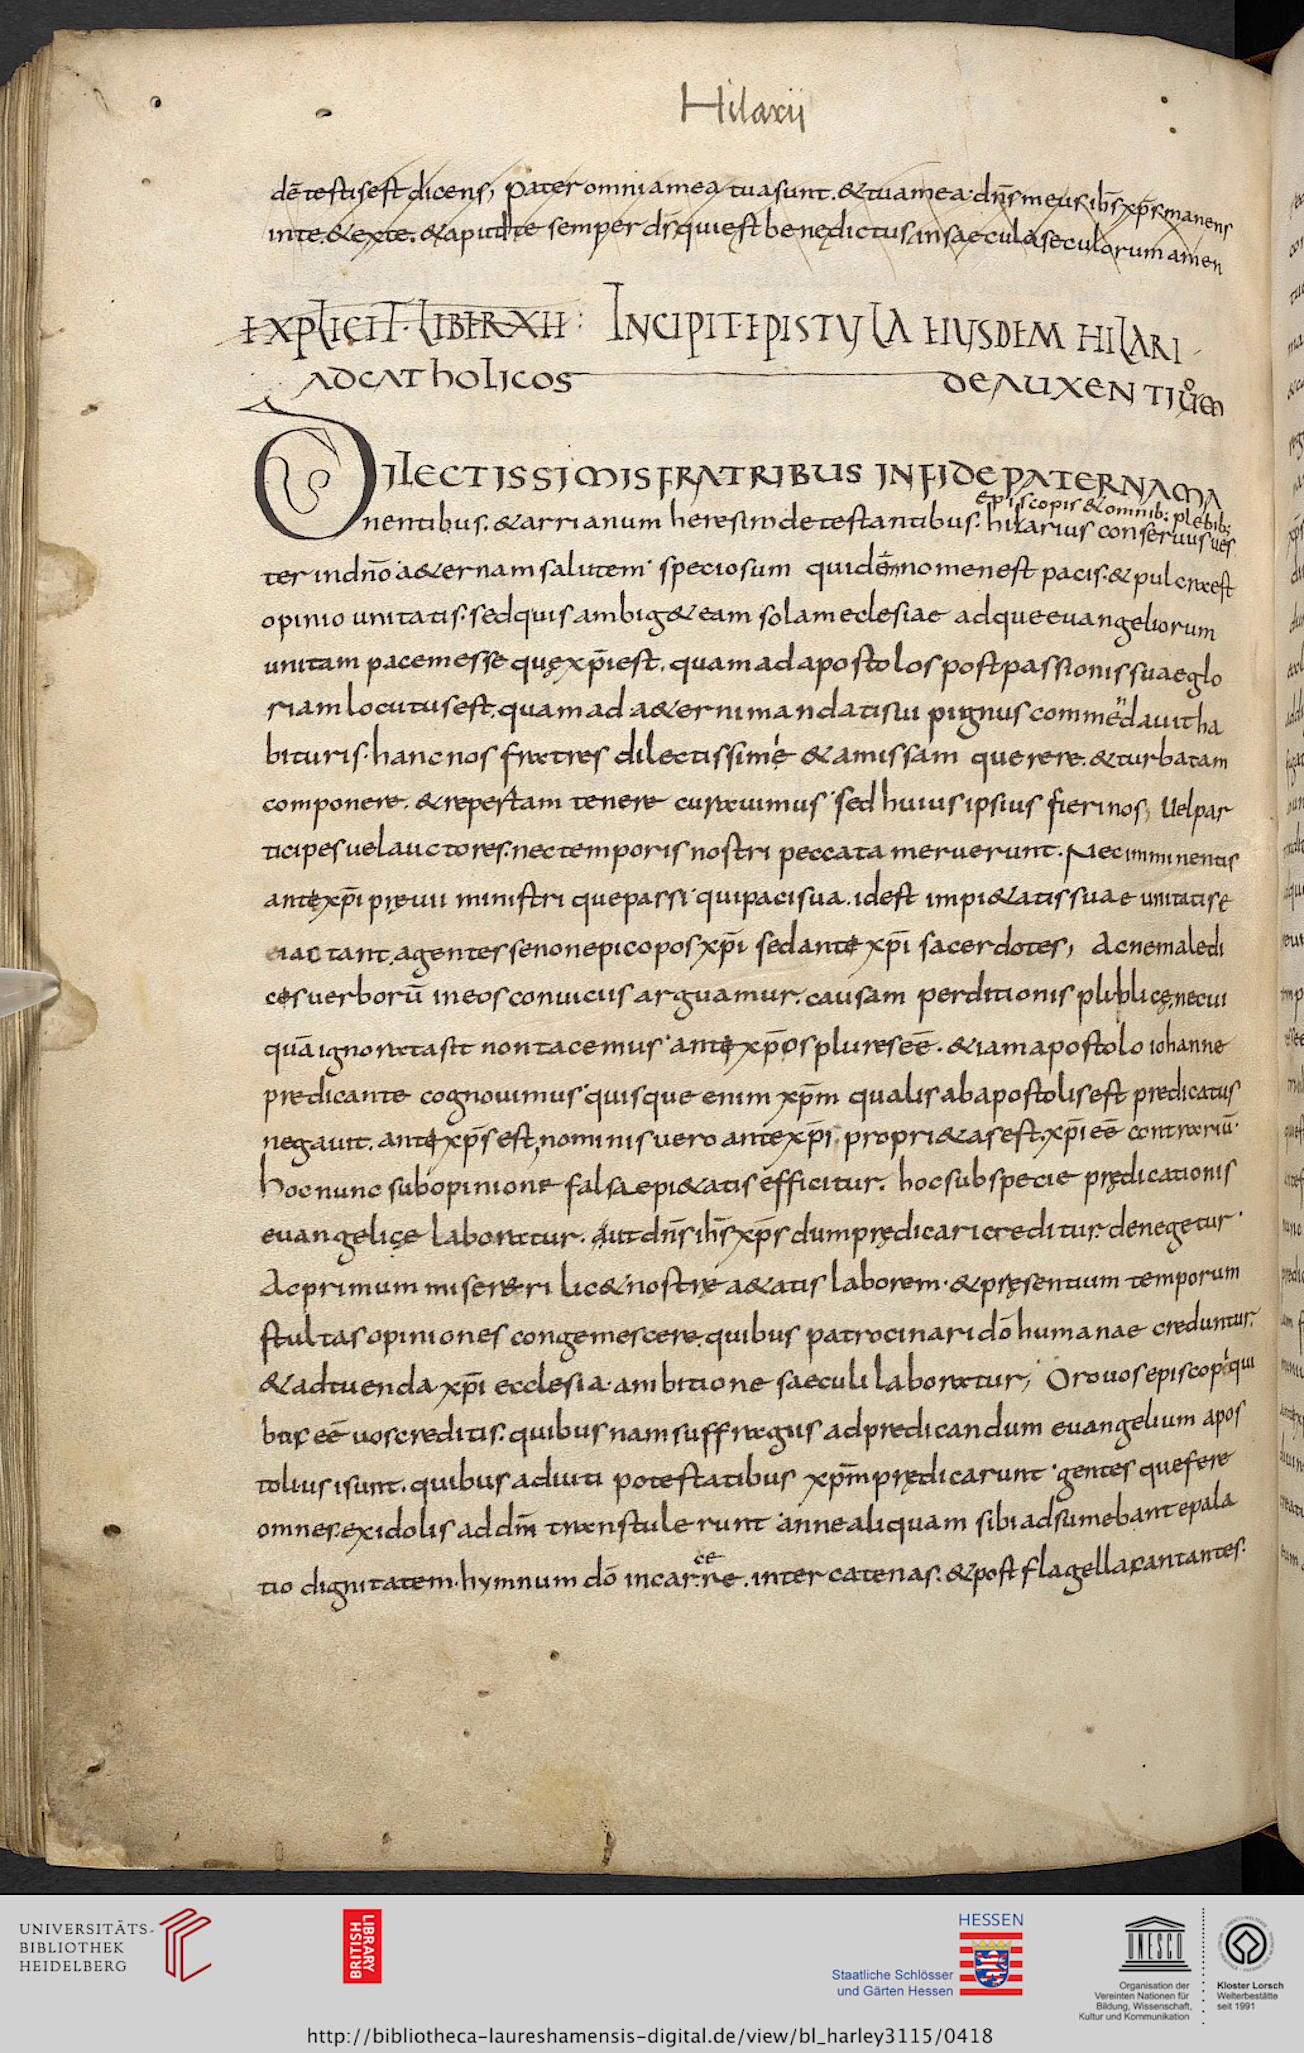 Hilarii
dē testis est dicens, pater omnia mea tua sunt. & tua mea. dn̄s meus ih̄s xp̄s manens
in te. & ex te. & aput te semper dr̄ qui est benedictus in saecula seculorum amen
EXPLICIT. LIBER XII: INCIPIT. EPISTULA EIUSDEM HILARI
AD CATHOLICOS DE AUXENTIUM
DILECTISSIMIS FRATRIBUS IN FIDE PATERNA MA
episcopis & omnib: plebib:
nentibus. & arrianum heresim detestantibus. hilarius conseruus ues
ter in dn̄o a&ernam salutem. speciosum quidē nomen est pacis. & pulcra est
opinio unitatis. sed quis ambig& eam solam eclesiae adque euangeliorum
unitam pacem esse quę xp̄i est. quam ad apostolos post passionis suae glo
riam locutus est. quam ad a&erni mandati sui pignus commēdauit ha
bituris. hanc nos fratres dilectissimé & amissam querere. & turbatam
componere. & repertam tenere curauimus. sed huius ipsius fieri nos, Uel par
ticipes uel auctores. nec temporis nostri peccata meruerunt. Nec imminentis
antęxp̄i pręuii ministri que passi. qui pacis ua. id est impi&atis suae unitatis e
iactant. agentes se non epicopos xp̄i sed antexp̄i sacerdotes, Ac ne maledi
cęs uerborū in eos conuiciis arguamur. causam perditionis publicę. ne cui
quā ignorata sit non tacemus. antęxp̄os plures eē. &iam apostolo iohanne
predicante cognouimus. quisque enim xp̄m qualis ab apostolis est predicatus
negauit. antęxp̄s est, nominis uero antexp̄i. propri&as est. xp̄i eē contrariū.
hoc nunc sub opinione falsae pi&atis efficitur. hoc sub specie prędicationis
euangelięe laboratur. aut dn̄s ih̄s xp̄s dum prędicari creditur. denegetur.
Ac primum misereri lic& nostrę a&atis laborem. & pręsentium temporum
stultas opiniones congemescere. quibus patrocinari dō humanae creduntur.
& ad tuenda xp̄i ecclesia. ambitione saeculi laboratur, Oro uos episcopi qui
bus eē uos creditis. quibus nam suffragiis ad predicandum euangelium apos
toli usi sunt. quibus adiuti potestatibus xp̄m prędicarunt. gentes que fere
omnes. ex idolis ad dm̄ transtulerunt. anne aliquam sibi adsumebant e pala
tio dignitatem. hymnum dō in carcere. inter catenas. & post flagella cantantes.
UNIVERSITÄTS-
BIBLIOTHEK
HEIDELBERG
BRITISH
LIBRARY
HESSEN
Staatliche Schlösser
und Gärten Hessen
UNESCO
Organisation der
Vereinten Nationen für
Bildung, Wissenschaft,
Kultur und Kommunikation
Kloster Lorsch
Welterbestätte
seit 1991
http://bibliotheca-laureshamensis-digital.de/view/bl_harley3115/0418